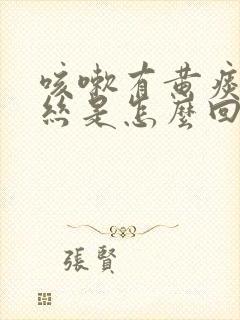 咳嗽有黄痰
絲是怎麼回
張賢